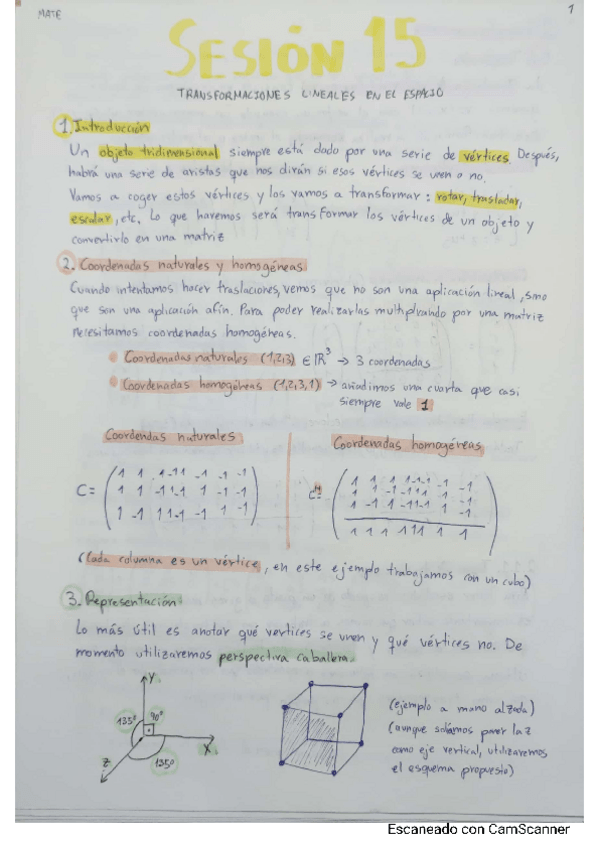 MATE
1
SESIÓN 15
TRANSFORMACIONES LINEALES EN EL ESPACIO
1. Introducción
Un objeto tridimensional siempre está dado por una serie de vértices. Después,
habrá una serie de aristas que nos dirán si esos vértices se unen o no.
Vamos a coger estos vértices y los vamos a transformar: rotar, trasladar,
escalar, etc. Lo que haremos será transformar los vértices de un objeto y
convertirlo en una matriz
2. Coordenadas naturales y homogéneas
Cuando intentamos hacer traslaciones, vemos que no son una aplicación lineal, sino
que son una aplicación afín. Para poder realizarlas multiplicando por una matriz
necesitamos coordenadas homogéneas.
Coordenadas naturales (1,2,3) ∈ ℝ³ → 3 coordenadas
Coordenadas homogéneas (1,2,3,1) → añadimos una cuarta que casi
siempre vale 1
Coordendas naturales
Coordenadas homogéneas
C =
1 1 1 -1 1 -1 -1 -1
1 1 -1 1 -1 1 -1 -1
1 -1 1 1 -1 -1 1 -1
1 1 1 1 1 1 1 1
(Cada columna es un vértice, en este ejemplo trabajamos con un cubo)
3. Representación:
Lo más útil es anotar qué vertices se unen y qué vértices no. De
momento utilizaremos perspectiva caballera.
Y
135º 90º
X
Z
135º
(ejemplo a mano alzada)
(aunque solamos poner la z
como eje vertical, utilizaremos
el esquema propuesto)
Escaneado con CamScanner